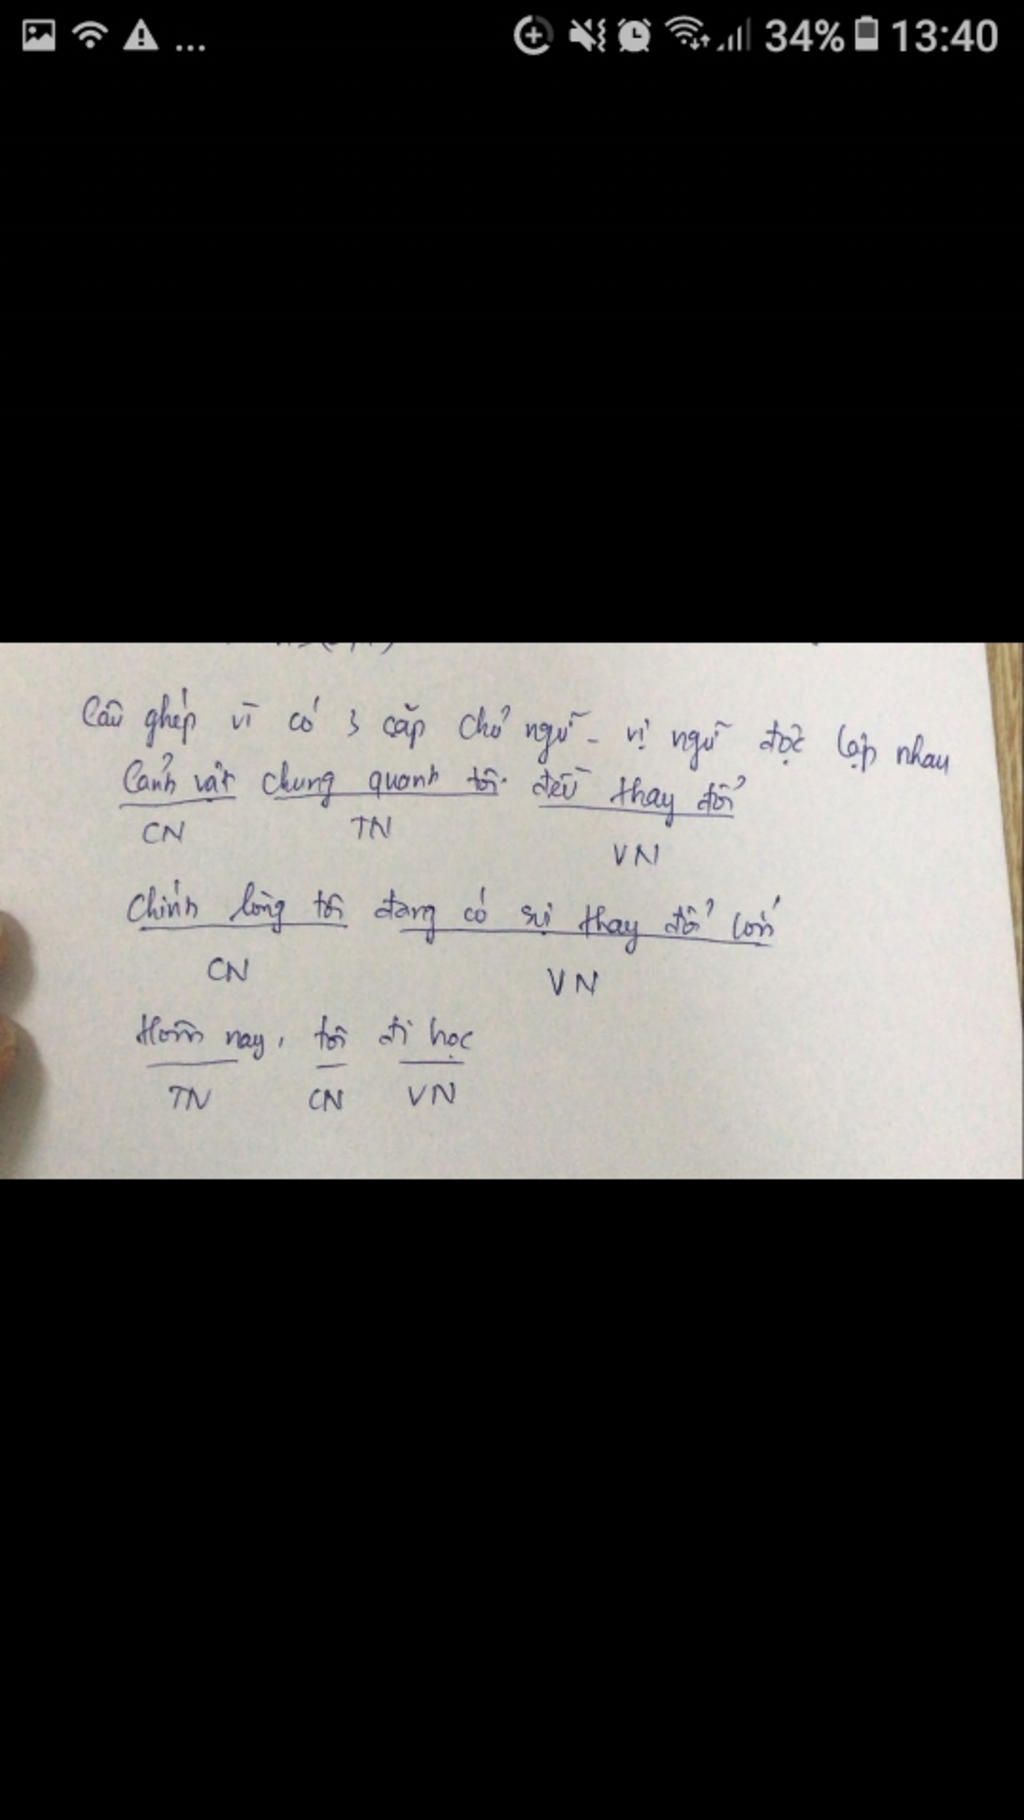 ... 34% 13:40
Câu ghép vì có 3 cặp chủ ngữ - vị ngữ độc lập nhau
Cảnh vật chung quanh tôi đều thay đổi
CN TN
VN
Chính lòng tôi đang có sự thay đổi lớn
CN VN
Hôm nay, tôi đi học
TN CN VN